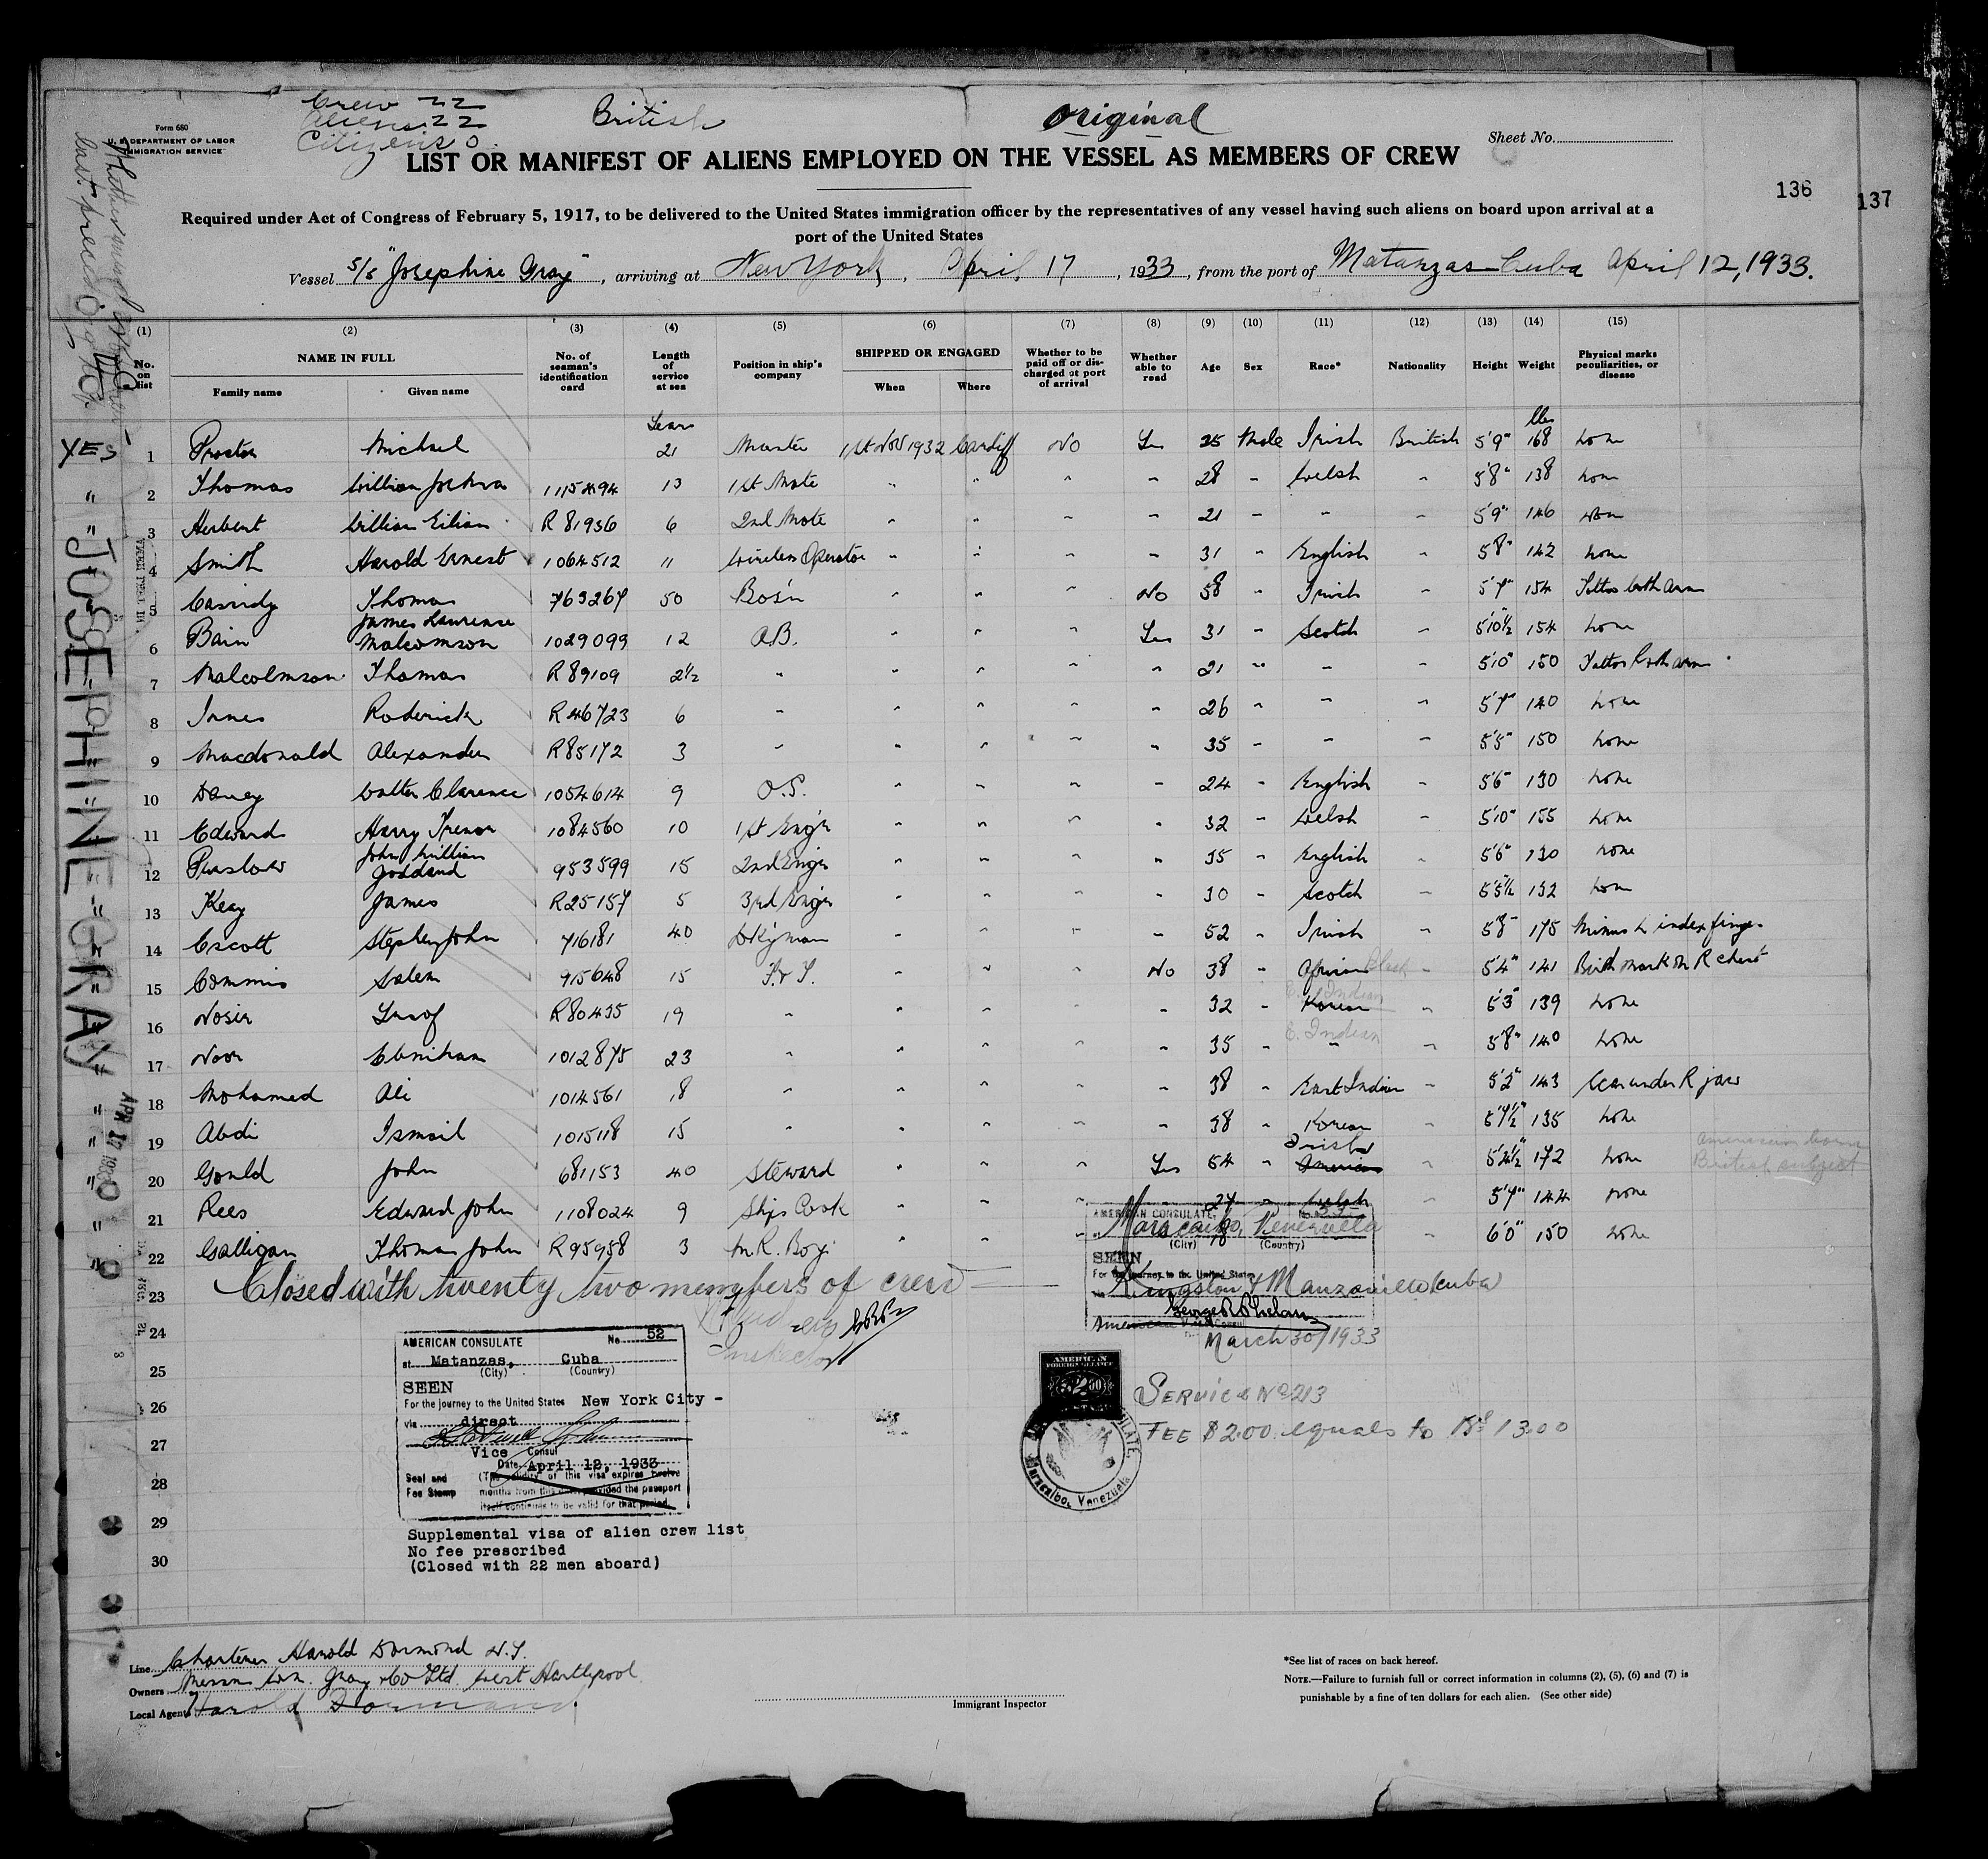 Form 680
U. S. DEPARTMENT OF LABOR
IMMIGRATION SERVICE
Crew 22
Aliens 22
Citizens 0
British
Original
Sheet No.
LIST OR MANIFEST OF ALIENS EMPLOYED ON THE VESSEL AS MEMBERS OF CREW
136
137
Required under Act of Congress of February 5, 1917, to be delivered to the United States immigration officer by the representatives of any vessel having such aliens on board upon arrival at a
port of the United States
Vessel S/S "Josephine Gray", arriving at New York, April 17, 1933, from the port of Matanzas Cuba April 12, 1933.
(1) (2) (3) (4) (5) (6) (7) (8) (9) (10) (11) (12) (13) (14) (15)
No. on list NAME IN FULL Family name Given name No. of seaman's identification card Length of service at sea Position in ship's company SHIPPED OR ENGAGED When Where Whether to be paid off or discharged at port of arrival Whether able to read Age Sex Race* Nationality Height Weight Physical marks peculiarities, or disease
Years lbs
YES 1 Proctor Michael 21 Master 1st Nov 1932 Cardiff No Yes 25 Male Irish British 5'9" 168 none
" 2 Thomas William Joshua 1115494 13 1st Mate " " " " 28 " Welsh " 5'8" 138 none
" 3 Herbert William Eilian R 81936 6 2nd Mate " " " " 21 " " " 5'9" 146 none
" 4 Smith Harold Ernest 1064512 11 Wireless Operator " " " " 31 " English " 5'8" 142 none
" 5 Cassidy Thomas 763267 50 Bos'n " " " No 58 " Irish " 5'7" 154 Tattoo both arms
" 6 Bain James Laurence Malcomson 1029099 12 A.B. " " " Yes 31 " Scotch " 5'10½ 154 none
" 7 Malcolmson Thomas R 89109 2½ " " " " " 21 " " " 5'10" 150 Tattoo both arms
" 8 Innes Roderick R 46723 6 " " " " " 26 " " " 5'7" 140 none
" 9 Macdonald Alexander R85172 3 " " " " " 35 " " " 5'5" 150 none
" 10 Davey Walter Clarence 1054614 9 O.S. " " " " 24 " English " 5'6" 130 none
" 11 Edwards Harry Trevor 1084560 10 1st Engr " " " " 32 " Welsh " 5'10" 155 none
" 12 Purslow John William Goddard 953599 15 2nd Engr " " " " 35 " English " 5'6" 130 none
" 13 Keay James R25157 5 3rd Engr " " " " 30 " Scotch " 5'5½ 132 none
" 14 Escott Stephen John 716181 40 Dkyman " " " " 52 " Irish " 5'8" 175 Minus L index finger
" 15 Commis Salem 915648 15 F. & T. " " " No 38 " African Black " 5'4" 141 Birth mark on R chest
" 16 Nosir Yusof R80435 19 " " " " " 32 " Korean E. Indian " 5'3" 139 none
" 17 Noor 1012875 23 " " " " " 35 " " E. Indian " 5'8" 140 none
" 18 Mohamed Ali 1014561 18 " " " " " 38 " East Indian " 5'2" 143 Scar under R jaw
" 19 Abdi Ismail 1015118 15 " " " " " 38 " Korean " 5'7½" 135 none
" 20 Gould John 681153 40 Steward " " " Yes 54 " Irish American " 5'4½" 172 none American born British subject
" 21 Rees Edward John 1108024 9 Ships Cook " " " " 24 " Welsh " 5'7" 144 none
" 22 Galligan Thomas John R95958 3 M.R. Boy " " " " 18 6'0" 150 none
JOSEPHINE GRAY
APR 17 1933
23 Closed with twenty two members of crew
24
25
26
27
28
29
30
Inspector
AMERICAN CONSULATE No. 52
at Matanzas, Cuba
(City) (Country)
SEEN
For the journey to the United States New York City -
via direct
Vice Consul
Date April 12, 1933
Seal and Fee Stamp
(The validity of this visa expires twelve
months from this date provided the passport
itself continues to be valid for that period.
Supplemental visa of alien crew list
No fee prescribed
(Closed with 22 men aboard)
AMERICAN CONSULATE,
Maracaibo, Venezuela
(City) (Country)
SEEN
For the journey to the United States
via Kingston & Manzanillo (Cuba)
George R Phelan
American Vice Consul
March 30/1933
AMERICAN
FOREIGN SERVICE
Maracaibo, Venezuela
SERVICE No 213
FEE $2.00 equals to Bs 13.00
Line Charterer Harold Dormond N.Y.
Owners Messrs Wm. Gray & Co Ltd. West Hartlepool
Local Agents Harold Dormand
Immigrant Inspector
*See list of races on back hereof.
NOTE.—Failure to furnish full or correct information in columns (2), (5), (6) and (7) is
punishable by a fine of ten dollars for each alien. (See other side)